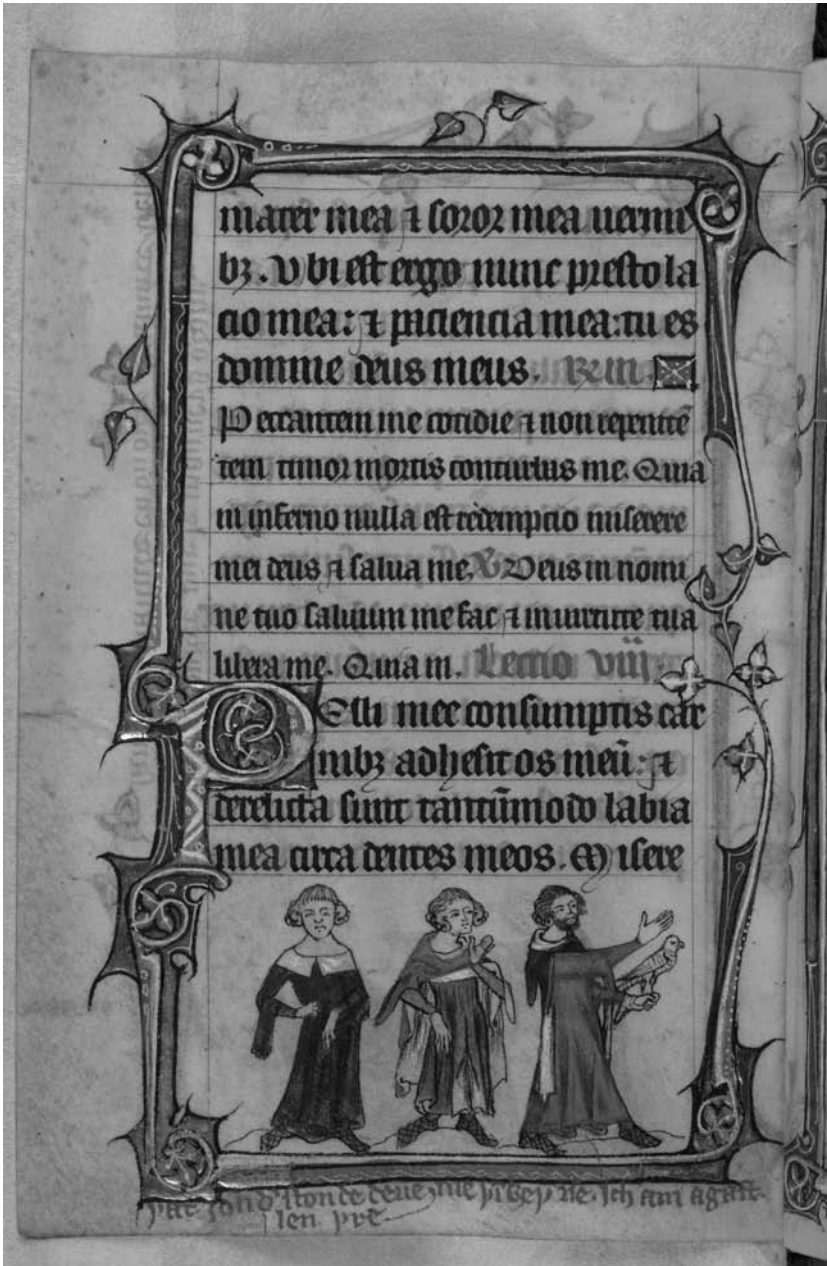 mater mea ⁊ soror mea uermi
bꝫ. Vbi est ergo nunc prestola
cio mea: ⁊ paciencia mea: tu es
domine deus meus.
Peccantem me cotidie ⁊ non repente
tem timor mortis conturbus me. Quia
in inferno nulla est redempcio miserere
mei deus ⁊ salua me. V Deus in nomi
ne tuo saluum me fac ⁊ in uirtute tua
libera me. Quia in. Lectio viij.
Pelli mee consumptis car
nibꝫ adhesit os meū: ⁊
derelicta sunt tantūmodo labia
mea circa dentes meos. Misere
ich am agast.